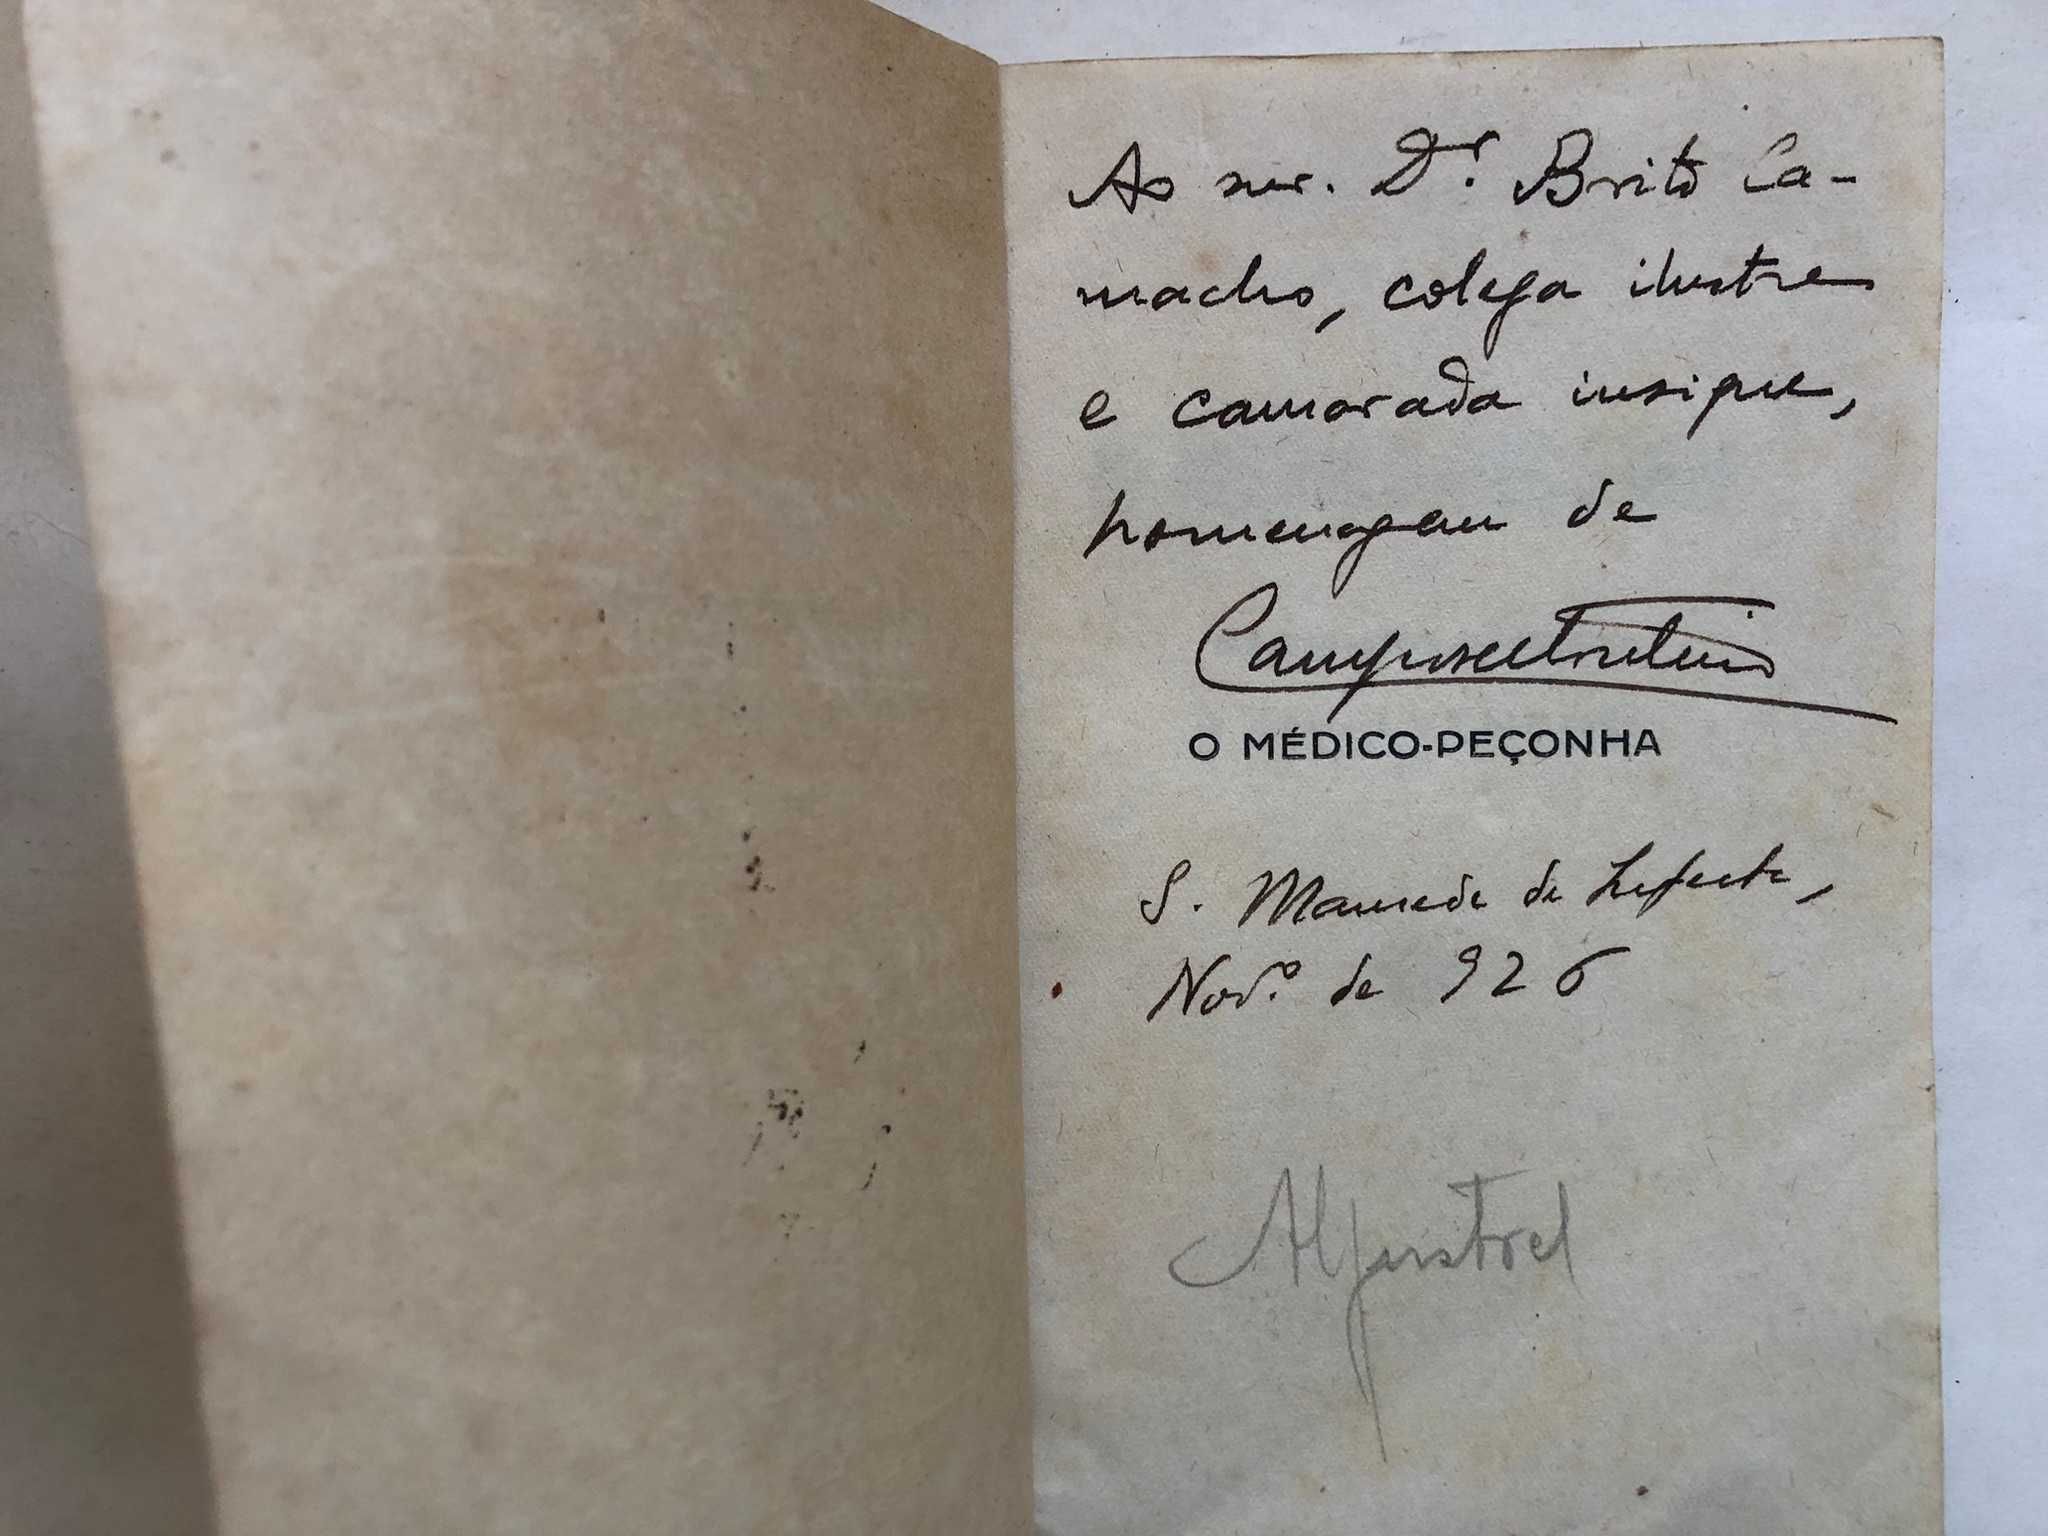 Ao snr. Dr. Brito Ca-
macho, colega ilustre
e camarada insigne,
homenagem de
O MÉDICO-PEÇONHA
S. Mamede de Infesta,
Nov.º de 926
Aljustrel